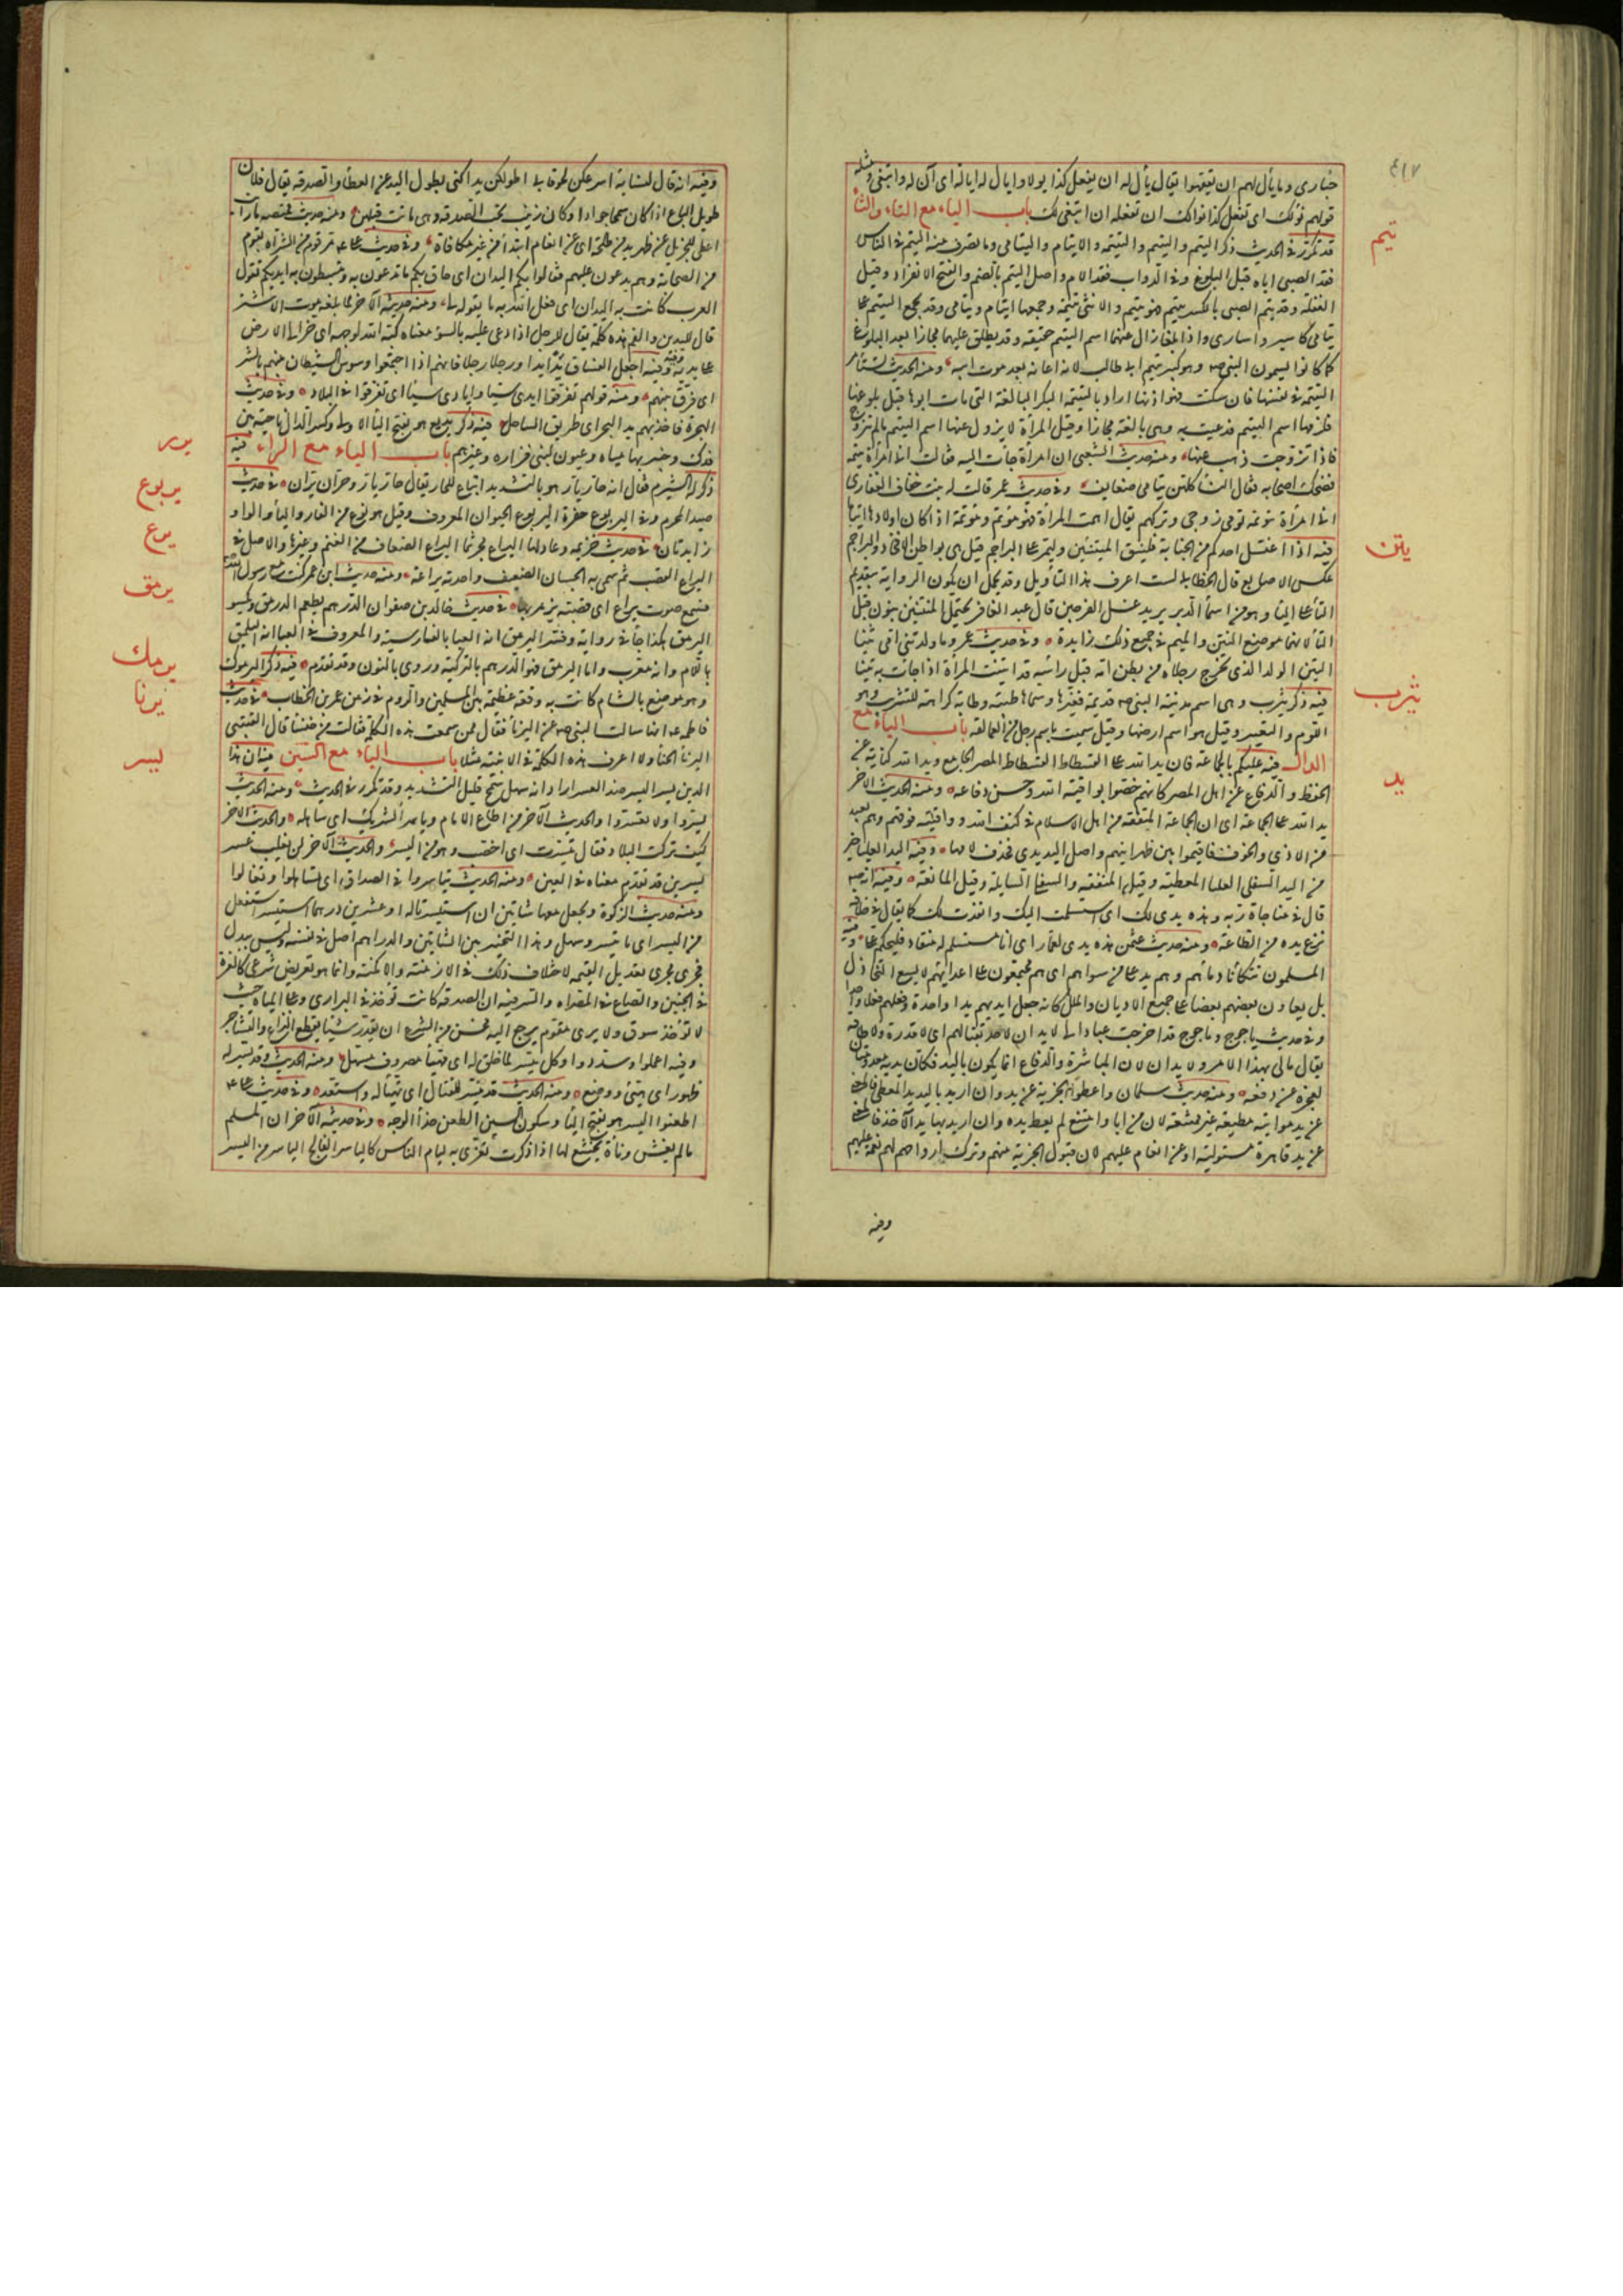 ٤١٧
قولهم نولك ان تفعل كذا نوالك ان تفعله ان انبغى لك باب الياء مع التاء والثاء
يتم
قد تكرر في الحديث ذكر اليتم واليتيم واليتيمة والايتام واليتامى وما تصرف منه اليتم في الناس
فقد الصبي اباه قبل البلوغ وفي الدواب فقد الام واصل اليتم بالضم والفتح الانفراد وقيل
الغفلة وقد يتم الصبي بالكسر ييتم فهو يتيم والانثى يتيمة وجمعها ايتام ويتامى وقد يجمع اليتيم على
يتامى كاسير واسارى واذا بلغا زال عنهما اسم اليتم حقيقة وقد يطلق عليهما مجازا بعد البلوغ
اليتيمة في نفسها فان سكتت فهو اذنها اراد باليتيمة البكر البالغة التي مات ابوها قبل بلوغها
فلزمها اسم اليتم فدعيت به وهي بالغة مجازا وقيل المرأة لا يزول عنها اسم اليتم ما لم تتزوج
فاذا تزوجت ذهب عنها ومنه حديث الشعبي ان امرأة جاءت اليه فقالت اني امرأة يتيمة
فضحك اصحابه فقال النساء كلهن يتامى اي ضعايف وفي حديث عمر قالت له بنت خفاف الغفاري
يتن
فيه اذا اغتسل احدكم من الجنابة فلينق الميتنين وليمر على البراجم
يثرب
فيه ذكر يثرب وهي اسم مدينة النبي صلعم قديمة فغيرها وسماها طيبة وطابة كراهة للتثريب وهو
اللوم والتعيير وقيل هو اسم ارضها وقيل سميت باسم رجل من العمالقة باب الياء مع
يد
الدال فيه عليكم بالجماعة فان يد الله على الفسطاط الفسطاط المصر الجامع ويد الله كناية عن
الحفظ والدفاع عن اهل المصر كانهم خصوا بواقية الله وحسن دفاعه ومنه الحديث الاخر
يد الله على الجماعة اي ان الجماعة المتفقة من اهل الاسلام في كنف الله ووقايته فوقهم وهم بعيد
من الاذى والخوف فاقيموا بين ظهرانيهم واصل اليد يدي فحذف لامها وفيه اليد العليا خير
من اليد السفلى العليا المعطية وقيل المنفقة والسفلى السايلة وقيل المانعة وفيه انه صلعم
قال في مناجاة ربه وهذه يدي لك اي استسلمت اليك وانقدت لك كما يقال في خلافه
نزع يده من الطاعة ومنه حديث عثمن هذه يدي لعمار اي انا مستسلم له منقاد فليحتكم على وفيه
المسلمون تتكافأ دماؤهم وهم يد على من سواهم اي هم مجتمعون على اعدائهم لا يسع التخاذل
بل يعاون بعضهم بعضا على جميع الاديان والملل كانه جعل ايديهم يدا واحدة وفعلهم فعلا واحدا
وفي حديث ياجوج وماجوج قد اخرجت عبادا لي لا يدان لاحد بقتالهم اي لا قدرة ولا طاقة
يقال مالي بهذا الامر ولا يدان لان المباشرة والدفاع انما يكون باليد فكان يديه معدومتان
لعجزه عن دفعه ومنه حديث سلمان واعطوا الجزية عن يد وان اريد باليد يد المعطي فالمعنى
عن يد مواتية مطيعة غير ممتنعة لان من ابا وامتنع لم يعط يده وان اريد بها يد الاخذ فالمعنى
عن يد قاهرة مستولية او عن انعام عليهم لان قبول الجزية منهم وترك ارواحهم لهم نعمة عليهم
وفيه
وفيه انه قال لنسائه اسرعكن لحوقا بي اطولكن يدا كنى بطول اليد عن العطاء والصدقة يقال فلان
طويل الباع اذا كان سمحا جوادا وكانت زينب تحب الصدقة وهي ماتت قبلهن ومنه حديث قبيصة ما رأيت
اعطى للجزيل عن ظهر يد من طلحة اي عن انعام ابتداء من غير مكافأة وفي حديث علي مر قوم من الشراة بقوم
من اصحابه وهم يدعون عليهم فقالوا بكم اليدان اي حاق بكم ما تدعون به وتبسطون به ايديكم تقول
العرب كانت به اليدان اي فعل الله به ما يقوله لي ومنه حديثه الاخر لما بلغه موت الاشتر
قال لليدين وللفم هذه كلمة تقال للرجل اذا دعي عليه بالسوء معناه كبه الله لوجهه اي خر الى الارض
على يديه وفيه وفيه اجعل الفساق يدا يدا ورجلا رجلا فانهم اذا اجتمعوا وسوس الشيطان بينهم بالشر
اي فرق بينهم ومنه قولهم تفرقوا ايدي سبا وايادي سبا اي تفرقوا في البلاد وفي حديث
الهجرة فاخذ بهم يد البحر اي طريق الساحل فيه ذكر يديع هو بفتح الياء الاولى وكسر الدال ناحية بين
فدك وخيبر بها مياه وعيون لبني فزارة وغيرهم باب الياء مع الراء فيه
يرر
ذكر له الشبرم فقال انه حار يار هو بالتشديد اتباع للحار يقال حار يار وحران يران في حديث
يربوع
صيد المحرم وفي اليربوع جفرة اليربوع الحيوان المعروف وقيل هو نوع من الفار والياء والواو
يرع
زايدتان في حديث خزيمة وعاد لها اليراع مجرنثما اليراع الضعاف من الغنم وغيرها والاصل في
اليراع القصب ثم سمي به الجبان الضعيف واحدته يراعة ومنه حديث ابن عمر كنت مع رسول الله
فسمع صوت يراع اي قصبة يزمر بها في حديث خالد بن صفوان الدرهم يطعم الدرمق ويكسو
يرمق
اليرمق هكذا جاء في رواية وفسر اليرمق انه القبا بالفارسية والمعروف في القبا انه اليلمق
باللام وانه معرب واما اليرمق فهو الدرهم بالتركية وروي بالنون وقد تقدم فيه ذكر اليرموك
يرمك
وهو موضع بالشام كانت به وقعة عظيمة بين المسلمين والروم في زمن عمر بن الخطاب في حديث
يرنا
فاطمة انها سالت النبي صلعم عن اليرناء فقال ممن سمعت هذه الكلمة فقالت من خنساء قال القتيبي
اليرناء الحناء ولا اعرف لهذه الكلمة في الابنية مثلا باب الياء مع السين فيه ان هذا
يسر
الدين يسر اليسر ضد العسر اراد انه سهل سمح قليل التشديد وقد تكرر في الحديث ومنه الحديث
يسروا ولا تعسروا والحديث الآخر من اطاع الامام وياسر الشريك اي ساهله والحديث الآخر
كيف تركت البلاد فقال تيسرت اي اخصبت وهو من اليسر والحديث الآخر لن يغلب عسر
يسرين قد تقدم معناه في العين ومنه الحديث تياسروا في الصداق اي تساهلوا ولا تغالوا
ومنه حديث الزكوة ويجعل معها شاتين ان استيسرتا له او عشرين درهما استيسر استفعل
من اليسر اي ما تيسر وسهل وهذا التخيير بين الشاتين والدراهم اصل في نفسه وليس ببدل
فجرى مجرى تعديل القيمة لاختلاف ذلك في الازمنة والامكنة وانما هو تعويض شرعي كالغرة
في الجنين والصاع في المصراة والسر فيه ان الصدقة كانت تؤخذ في البراري وعلى المياه حيث
لا توجد سوق ولا يرى مقوم يرجع اليه فحسن من الشرع ان يقدر شيئا يقطع النزاع والتشاجر
وفيه اعملوا وسددوا وكل ميسر لما خلق له اي مهيأ مصروف مسهل ومنه الحديث وقد يسر له
طهور اي هيئ ووضع ومنه الحديث قد تيسر للقتال اي تهيأ له واستعد وفي حديث علي
اطعنوا اليسر هو بفتح الياء وسكون السين الطعن حذاء الوجه وفي حديثه الآخر ان المسلم
ما لم يغش دناءة يخشع لها اذا ذكرت تغرى به ليام الناس كالياسر الفالج الياسر من الميسر